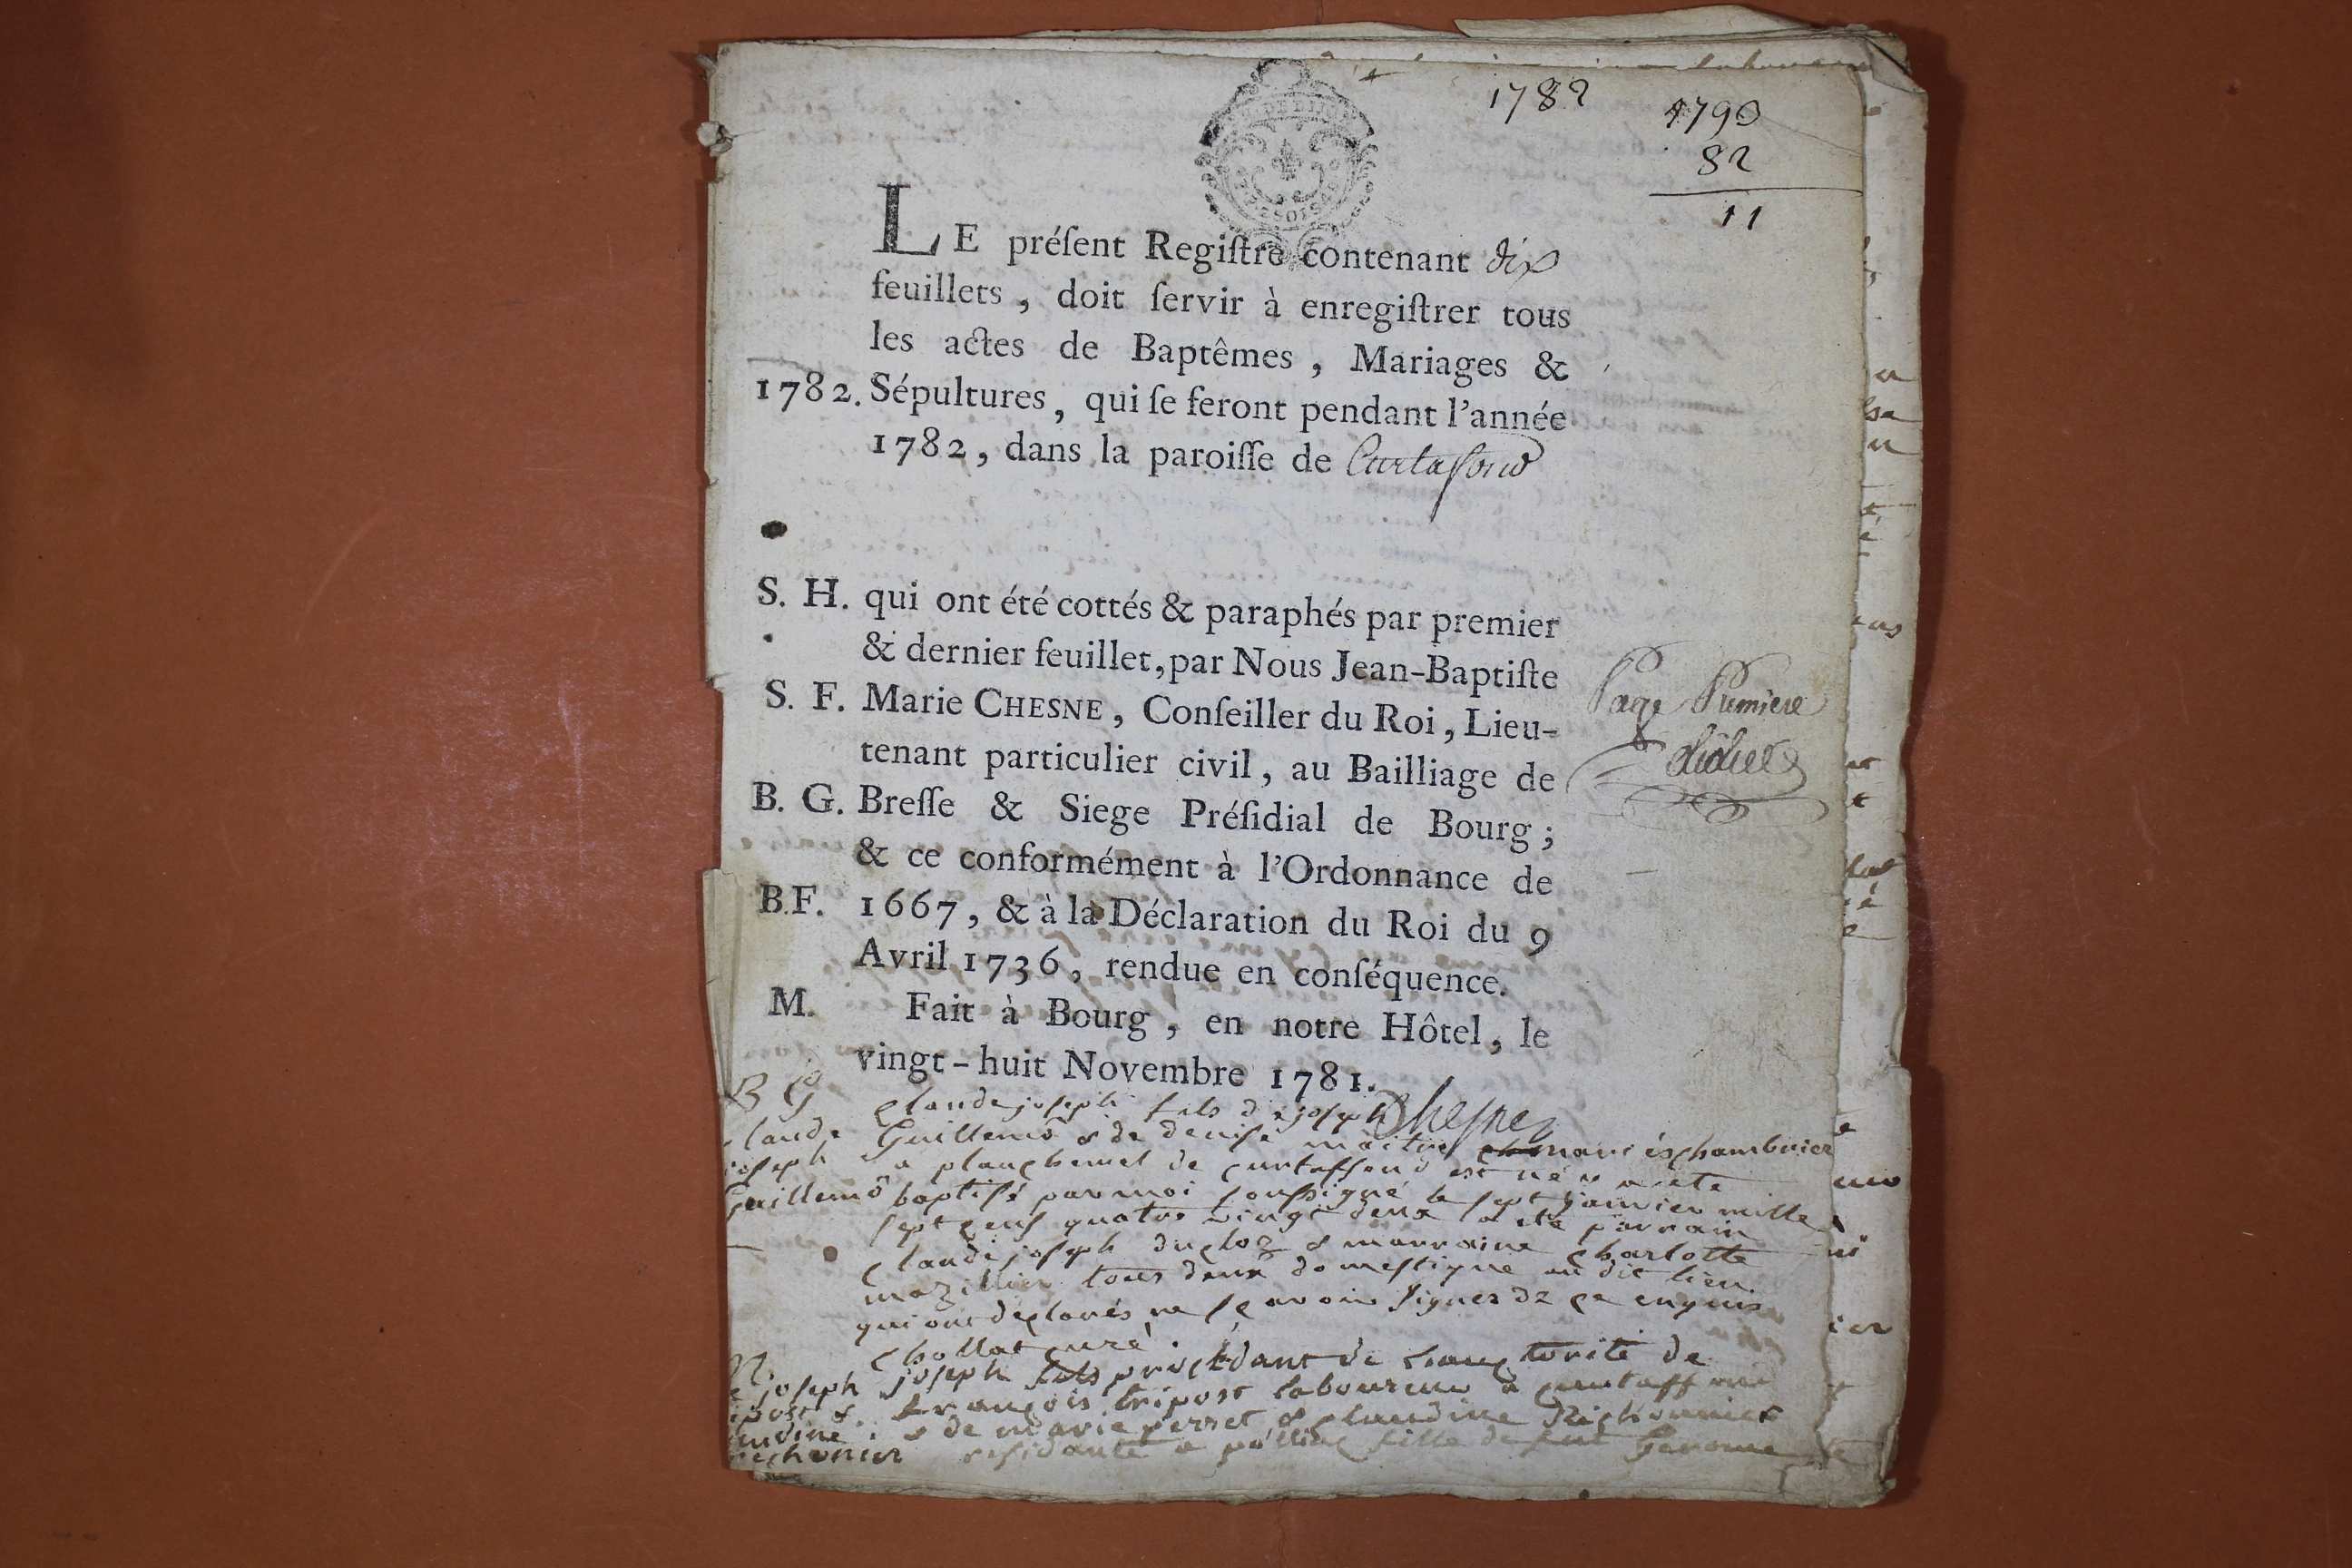 1782
1790
82
11
LE préſent Regiſtre contenant dix
feuillets, doit ſervir à enregiſtrer tous
les actes de Baptêmes, Mariages &
1782. Sépultures, qui ſe feront pendant l'année
1782, dans la paroiſſe de Curtafond
S. H. qui ont été cottés & paraphés par premier
& dernier feuillet, par Nous Jean-Baptiſte
S. F. Marie CHESNE, Conſeiller du Roi, Lieu-
tenant particulier civil, au Bailliage de
B. G. Breſſe & Siege Préſidial de Bourg;
& ce conformément à l'Ordonnance de
B.F. 1667, & à la Déclaration du Roi du 9
Avril 1736, rendue en conſéquence.
M. Fait à Bourg, en notre Hôtel, le
vingt-huit Novembre 1781.
Page Premiere
Chesne
B G
claude joseph fils de joseph
claude Guillemo & de denise maitre mari
joseph a de curtaffond est né &
Guillemo baptisé par moi soussigné le sept janvier mille
sept cens quatre vingt deux a été parrain
claude joseph ducloz & marraine charlotte
tous deux domestique au dit lieu
qui ont declarés ne sçavoir signer de ce enquis
chollat curé
joseph joseph fils procédant de l'auctorité de
françois tripost laboureur a curtaffond
& de marie perret & claudine
residante a fille de feu